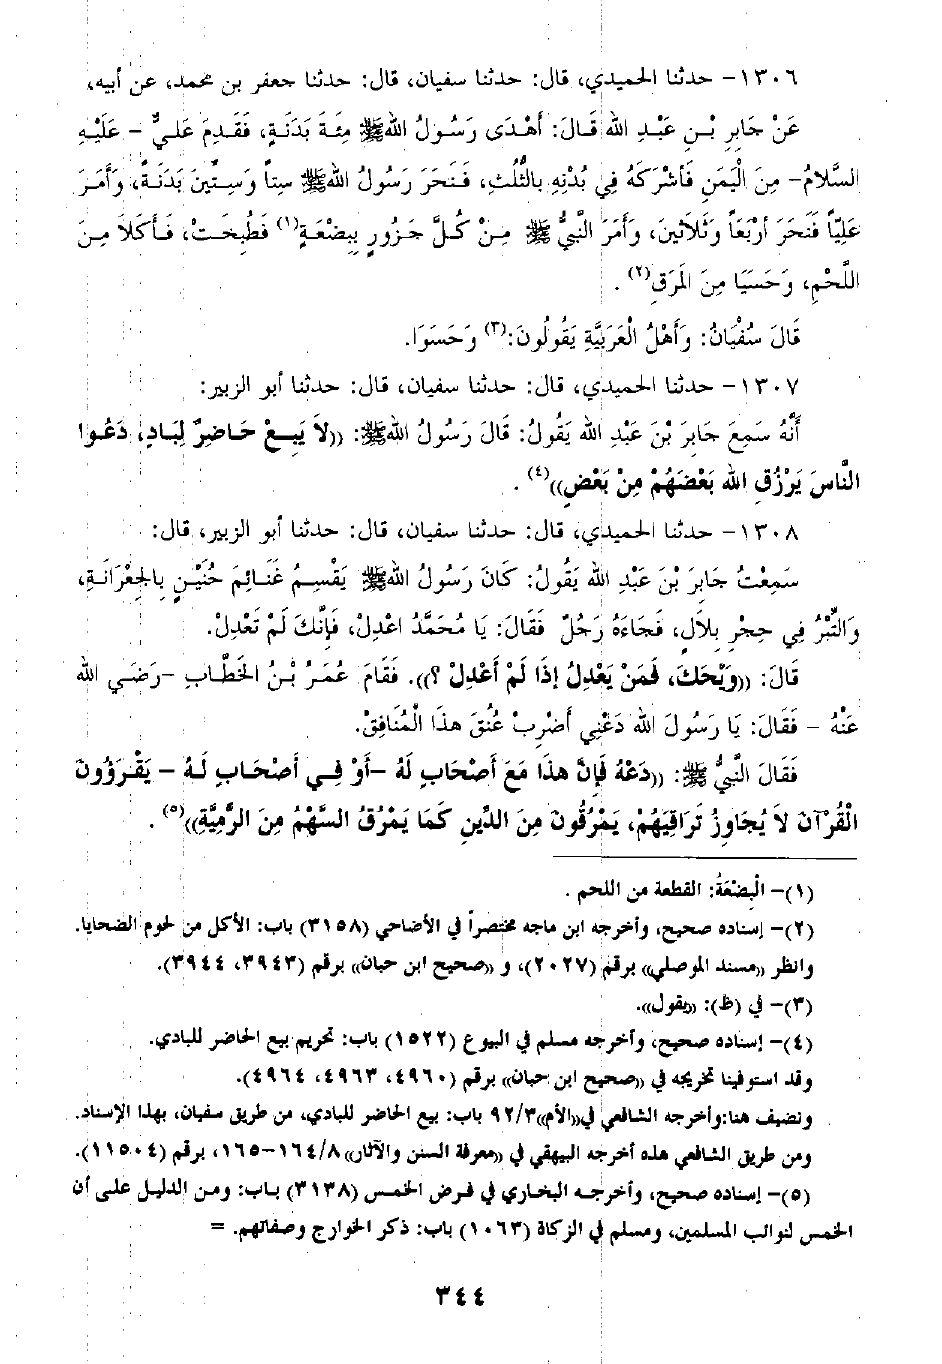 ١٣٠٦- حدثنا الحميدي، قال: حدثنا سفيان، قال: حدثنا جعفر بن محمد، عن أبيه،
عَنْ جَابِرِ بْنِ عَبْدِ الله قَالَ: أَهْدَى رَسُولُ اللهﷺ مِئَةَ بَدَنَةٍ، فَقَدِمَ عَلِيٌّ – عَلَيْهِ
السَّلاَمُ- مِنَ الْيَمَنِ فَأَشْرَكَهُ فِي بُدْنِهِ بِالثُّلُثِ، فَنَحَرَ رَسُولُ اللهﷺ سِتاً وَسِتِّينَ بَدَنَةً، وَأَمَرَ
عَلِيّاً فَنَحَرَ أَرْبَعاً وَثَلاَثِينَ، وَأَمَرَ النَّبِيُّ ﷺ مِنْ كُلِّ جَزُورٍ بِبِضْعَةٍ(١) فَطُبِخَتْ، فَأَكَلاَ مِنَ
اللَّحْمِ، وَحَسَيَا مِنَ الْمَرَقِ(٢) .
قَالَ سُفْيَانُ: وَأَهْلُ الْعَرَبِيَّةِ يَقُولُونَ:(٣) وَحَسَوَا.
١٣٠٧- حدثنا الحميدي، قال: حدثنا سفيان، قال: حدثنا أبو الزبير:
أَنَّهُ سَمِعَ جَابِرَ بْنَ عَبْدِ الله يَقُولُ: قَالَ رَسُولُ اللهﷺ: ((لاَ يَبِعْ حَاضِرٌ لِبَادٍ، دَعُوا
النَّاسَ يَرْزُقِ الله بَعْضَهُمْ مِنْ بَعْضٍ))(٤) .
١٣٠٨- حدثنا الحميدي، قال: حدثنا سفيان، قال: حدثنا أبو الزبير، قال:
سَمِعْتُ جَابِرَ بْنَ عَبْدِ الله يَقُولُ: كَانَ رَسُولُ اللهﷺ يَقْسِمُ غَنَائِمَ حُنَيْنٍ بِالْجِعْرَانَةِ،
وَالتِّبْرُ فِي حِجْرِ بِلاَلٍ، فَجَاءَهُ رَجُلٌ فَقَالَ: يَا مُحَمَّدُ اعْدِلْ، فَإِنَّكَ لَمْ تَعْدِلْ.
قَالَ: ((وَيْحَكَ، فَمَنْ يَعْدِلُ إِذَا لَمْ أَعْدِلْ ؟)). فَقَامَ عُمَرُ بْنُ الْخَطَّابِ -رَضِي الله
عَنْهُ – فَقَالَ: يَا رَسُولَ الله دَعْنِي أَضْرِبْ عُنُقَ هذَا الْمُنَافِقْ.
فَقَالَ النَّبِيُّ ﷺ: ((دَعْهُ فَإِنَّ هذَا مَعَ أَصْحَابٍ لَهُ –أَوْ فِي أَصْحَابٍ لَهُ – يَقْرَؤُونَ
الْقُرْآنَ لاَ يُجَاوِزُ تَرَاقِيَهُمْ، يَمْرُقُونَ مِنَ الدِّينِ كَمَا يَمْرُقُ السَّهْمُ مِنَ الرَّمِيَّةِ))(٥) .
(١)- الْبِضْعَةُ: القطعة من اللحم .
(٢)- إسناده صحيح، وأخرجه ابن ماجه مختصراً في الأضاحي (٣١٥٨) باب: الأكل من لحوم الضحايا.
وانظر ((مسند الموصلي)) برقم (٢٠٢٧)، و ((صحيح ابن حبان)) برقم (٣٩٤٣، ٣٩٤٤).
(٣)- في (ظ): ((يقول)).
(٤)- إسناده صحيح، وأخرجه مسلم في البيوع (١٥٢٢) باب: تحريم بيع الحاضر للبادي.
وقد استوفينا تخريجه في ((صحيح ابن حبان)) برقم (٤٩٦٠، ٤٩٦٣، ٤٩٦٤).
ونضيف هنا:وأخرجه الشافعي في((الأم))٩٢/٣ باب: بيع الحاضر للبادي، من طريق سفيان، بهذا الإسناد.
ومن طريق الشافعي هذه أخرجه البيهقي في ((معرفة السنن والآثار))١٦٤/٨-١٦٥، برقم (١١٥٠٤).
(٥)- إسناده صحيح، وأخرجه البخاري في فرض الخمس (٣١٣٨) باب: ومن الدليل على أن
الخمس لنوائب المسلمين، ومسلم في الزكاة (١٠٦٣) باب: ذكر الخوارج وصفاتهم. =
٣٤٤